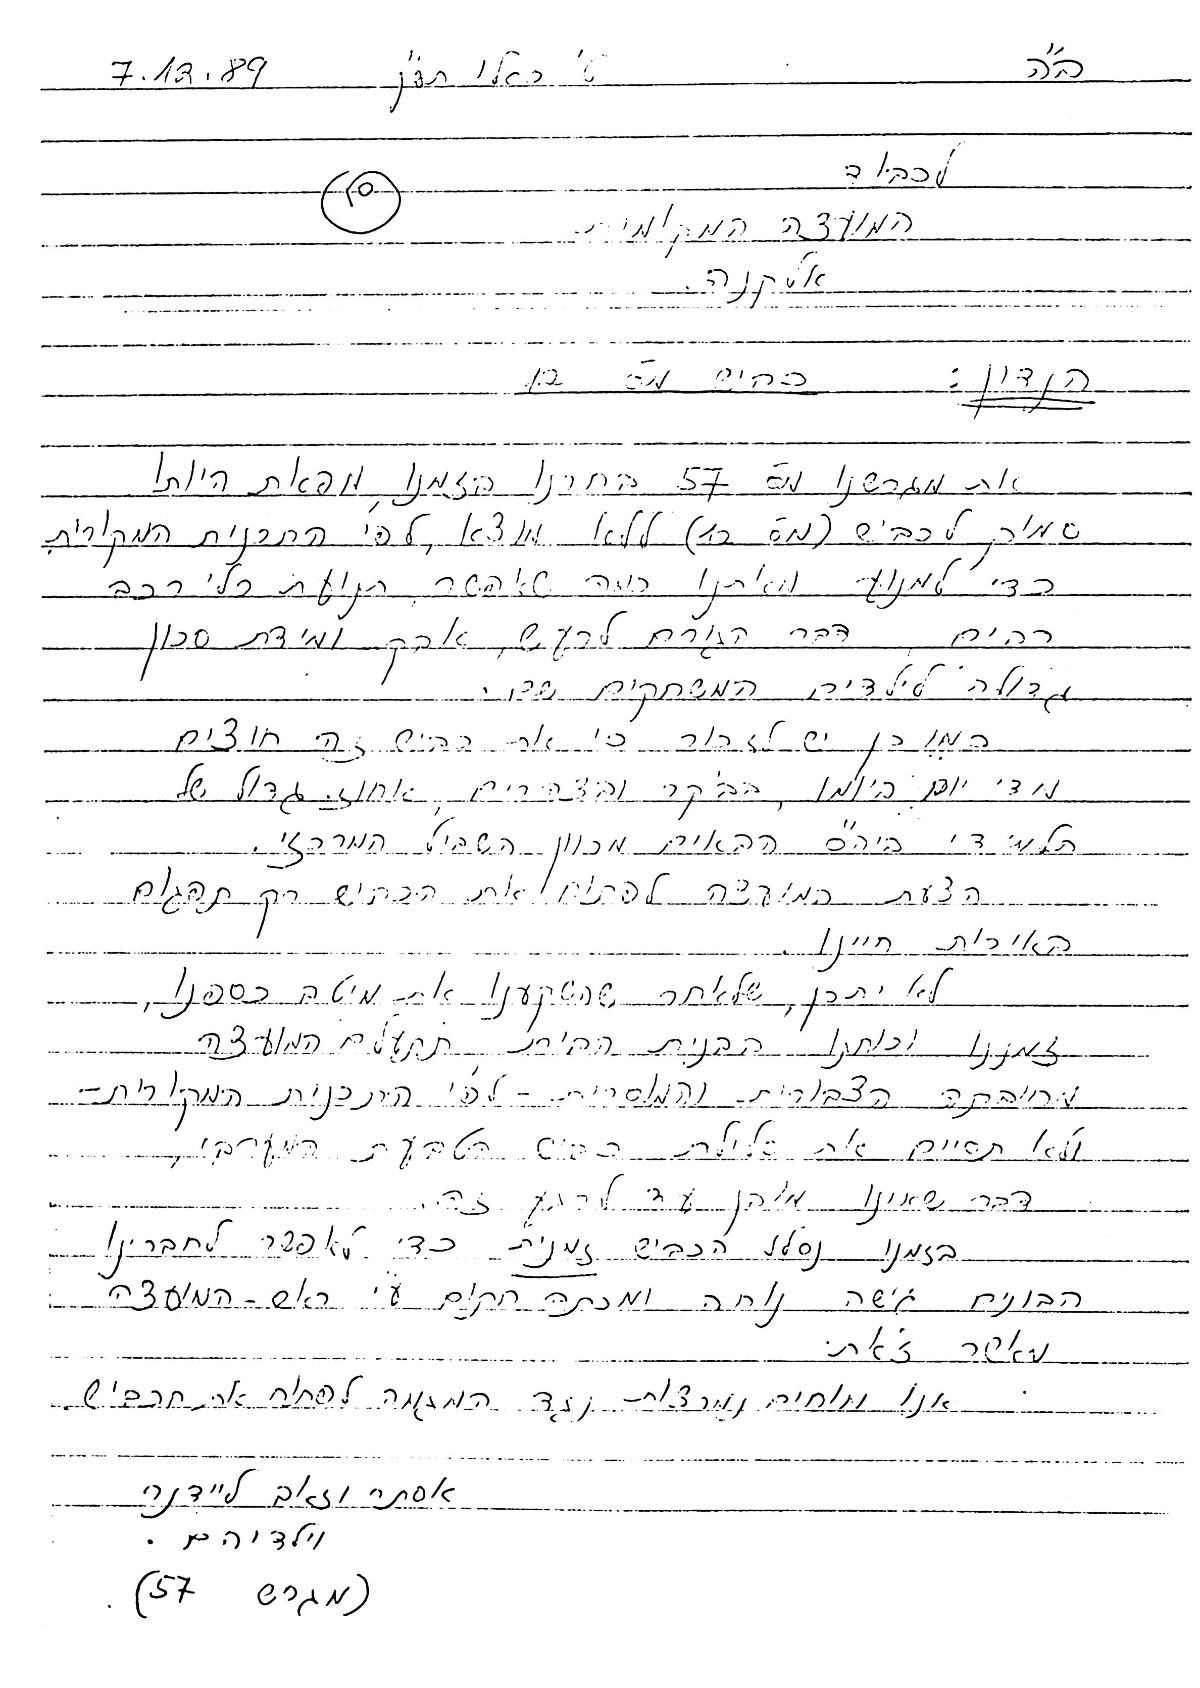 ב"ה ט' כסלו תש"ן 7.12.89
לכבוד
המועצה המקומית
אלקנה.
הנדון: כביש מס' 12
את מגרשנו מס' 57 בחרנו בזמנו, מפאת היותו
סמוך לכביש (מס' 12) ללא מוצא, לפי התכנית המקורית
כדי למנוע מאיתנו כמה שאפשר, תנועת כלי רכב
רבים, דבר הגורם לרעש, אבק ומידת סכון
גדולה לילדים המשחקים שם.
כמו כן יש לזכור כי את כביש זה חוצים
מדי יום ביומו, בבקר ובצהרים, אחוז גדול של
תלמידי ביה"ס הבאים מכוון השביל המרכזי.
הצעת המועצה לפתוח את הכביש רק תפגום
באיכות חיינו.
לא יתכן, שלאחר שהשקענו את מיטב כספנו,
זמננו וכוחנו בבנית הבית תתעלם המועצה
מחובתה הצבורית והמוסרית - לפי התכנית המקורית -
ולא תסיים את סלילת כביש הטבעת המערבי,
דבר שאינו מובן עד לרגע זה.
בזמנו נסלל הכביש זמנית כדי לאפשר לחברינו
הבונים גישה נוחה ומכתב הקים ע"י ראש-המועצה
מאשר זאת.
אנו מוחים נמרצות נגד המגמה לפתוח את הכביש.
אסתר וזאב ליידנר
וילדיהם.
(מגרש 57).